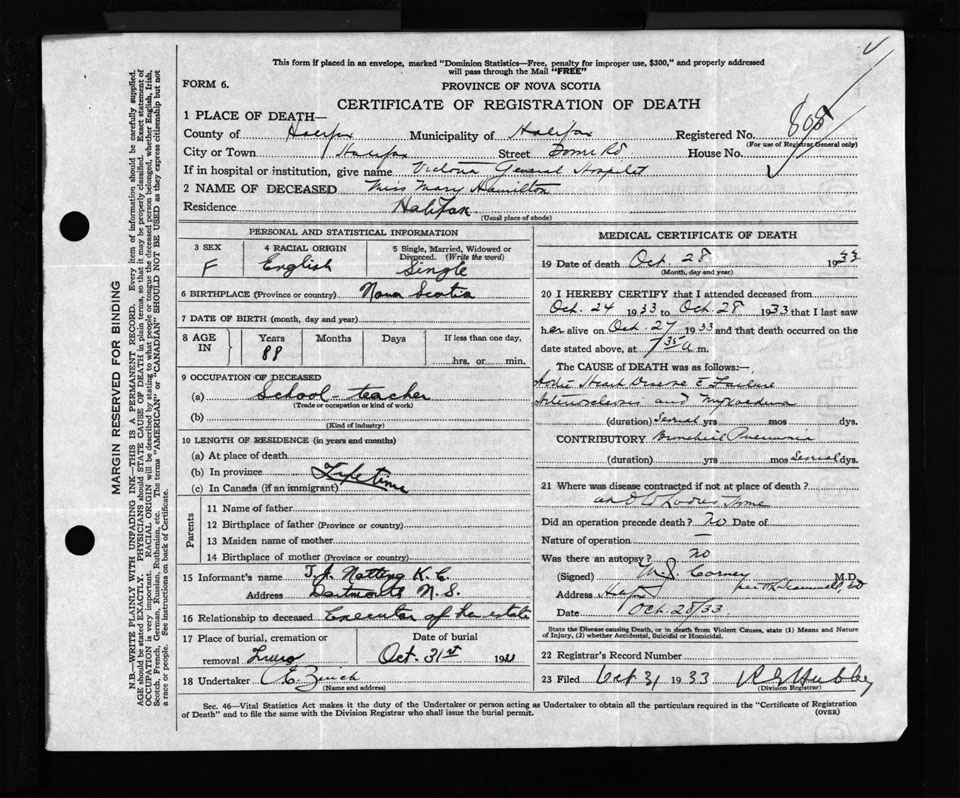 This form if placed in an envelope, marked "Dominion Statistics—Free, penalty for improper use, $300," and properly addressed
will pass through the Mail "FREE"
FORM 6.
PROVINCE OF NOVA SCOTIA
CERTIFICATE OF REGISTRATION OF DEATH
1 PLACE OF DEATH—
County of Halifax Municipality of Halifax Registered No. 808
(For use of Registrar General only)
City or Town Halifax Street House No.
If in hospital or institution, give name Victoria General Hospital
2 NAME OF DECEASED Miss Mary Hamilton
Residence Halifax
(Usual place of abode)
PERSONAL AND STATISTICAL INFORMATION
3 SEX 4 RACIAL ORIGIN 5 Single, Married, Widowed or
Divorced. (Write the word)
F English Single
6 BIRTHPLACE (Province or country) Nova Scotia
7 DATE OF BIRTH (month, day and year)
8 AGE IN Years Months Days If less than one day,
88 hrs. or min.
9 OCCUPATION OF DECEASED
(a) School-teacher
(Trade or occupation or kind of work)
(b)
(Kind of industry)
10 LENGTH OF RESIDENCE (in years and months)
(a) At place of death
(b) In province Life time
(c) In Canada (if an immigrant)
Parents
11 Name of father
12 Birthplace of father (Province or country)
13 Maiden name of mother
14 Birthplace of mother (Province or country)
15 Informant's name T. J. Notting K. C.
Address Dartmouth N. S.
16 Relationship to deceased Executor of her estate
17 Place of burial, cremation or Date of burial
removal Truro Oct. 31st 193
18 Undertaker
(Name and address)
MEDICAL CERTIFICATE OF DEATH
19 Date of death Oct. 28 1933
(Month, day and year)
20 I HEREBY CERTIFY that I attended deceased from
Oct. 24 1933 to Oct. 28 1933 that I last saw
her alive on Oct. 27 1933 and that death occurred on
the date stated above, at 7 35 a m.
The CAUSE of DEATH was as follows:—
Aortic Heart Disease & Failure
Arteriosclerosis and Myxoedema
(duration) Several yrs mos dys.
CONTRIBUTORY Bronchial Pneumonia
(duration) yrs mos Several dys.
21 Where was disease contracted if not at place of death?
Did an operation precede death? No Date of
Nature of operation —
Was there an autopsy? No
(Signed) M.D.
Address Hfx
Date Oct. 28/33.
State the Disease causing Death, or in death from Violent Causes, state (1) Means and Nature
of Injury, (2) whether Accidental, Suicidal or Homicidal.
22 Registrar's Record Number
23 Filed Oct 31 1933
(Division Registrar)
Sec. 46—Vital Statistics Act makes it the duty of the Undertaker or person acting as Undertaker to obtain all the particulars required in the "Certificate of Registration
of Death" and to file the same with the Division Registrar who shall issue the burial permit. (OVER)
MARGIN RESERVED FOR BINDING
N.B.—WRITE PLAINLY WITH UNFADING INK—THIS IS A PERMANENT RECORD. Every item of information should be carefully supplied.
AGE should be stated EXACTLY. PHYSICIANS should STATE CAUSE OF DEATH in plain terms, so that it may be properly classified. Exact statement of
OCCUPATION is very important. RACIAL ORIGIN will be described by stating to what people or tongue the deceased person belonged, whether English, Irish,
Scotch, French, German, Russian, Ruthenian, etc. The terms "AMERICAN" or "CANADIAN" SHOULD NOT BE USED as they express citizenship but not
a race or people. See instructions on back of Certificate.